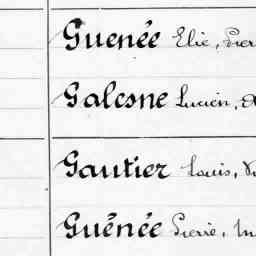 Guenée Elie, Pier
Galesne Lucien, A
Gautier Louis, V
Guénée Pierre, M